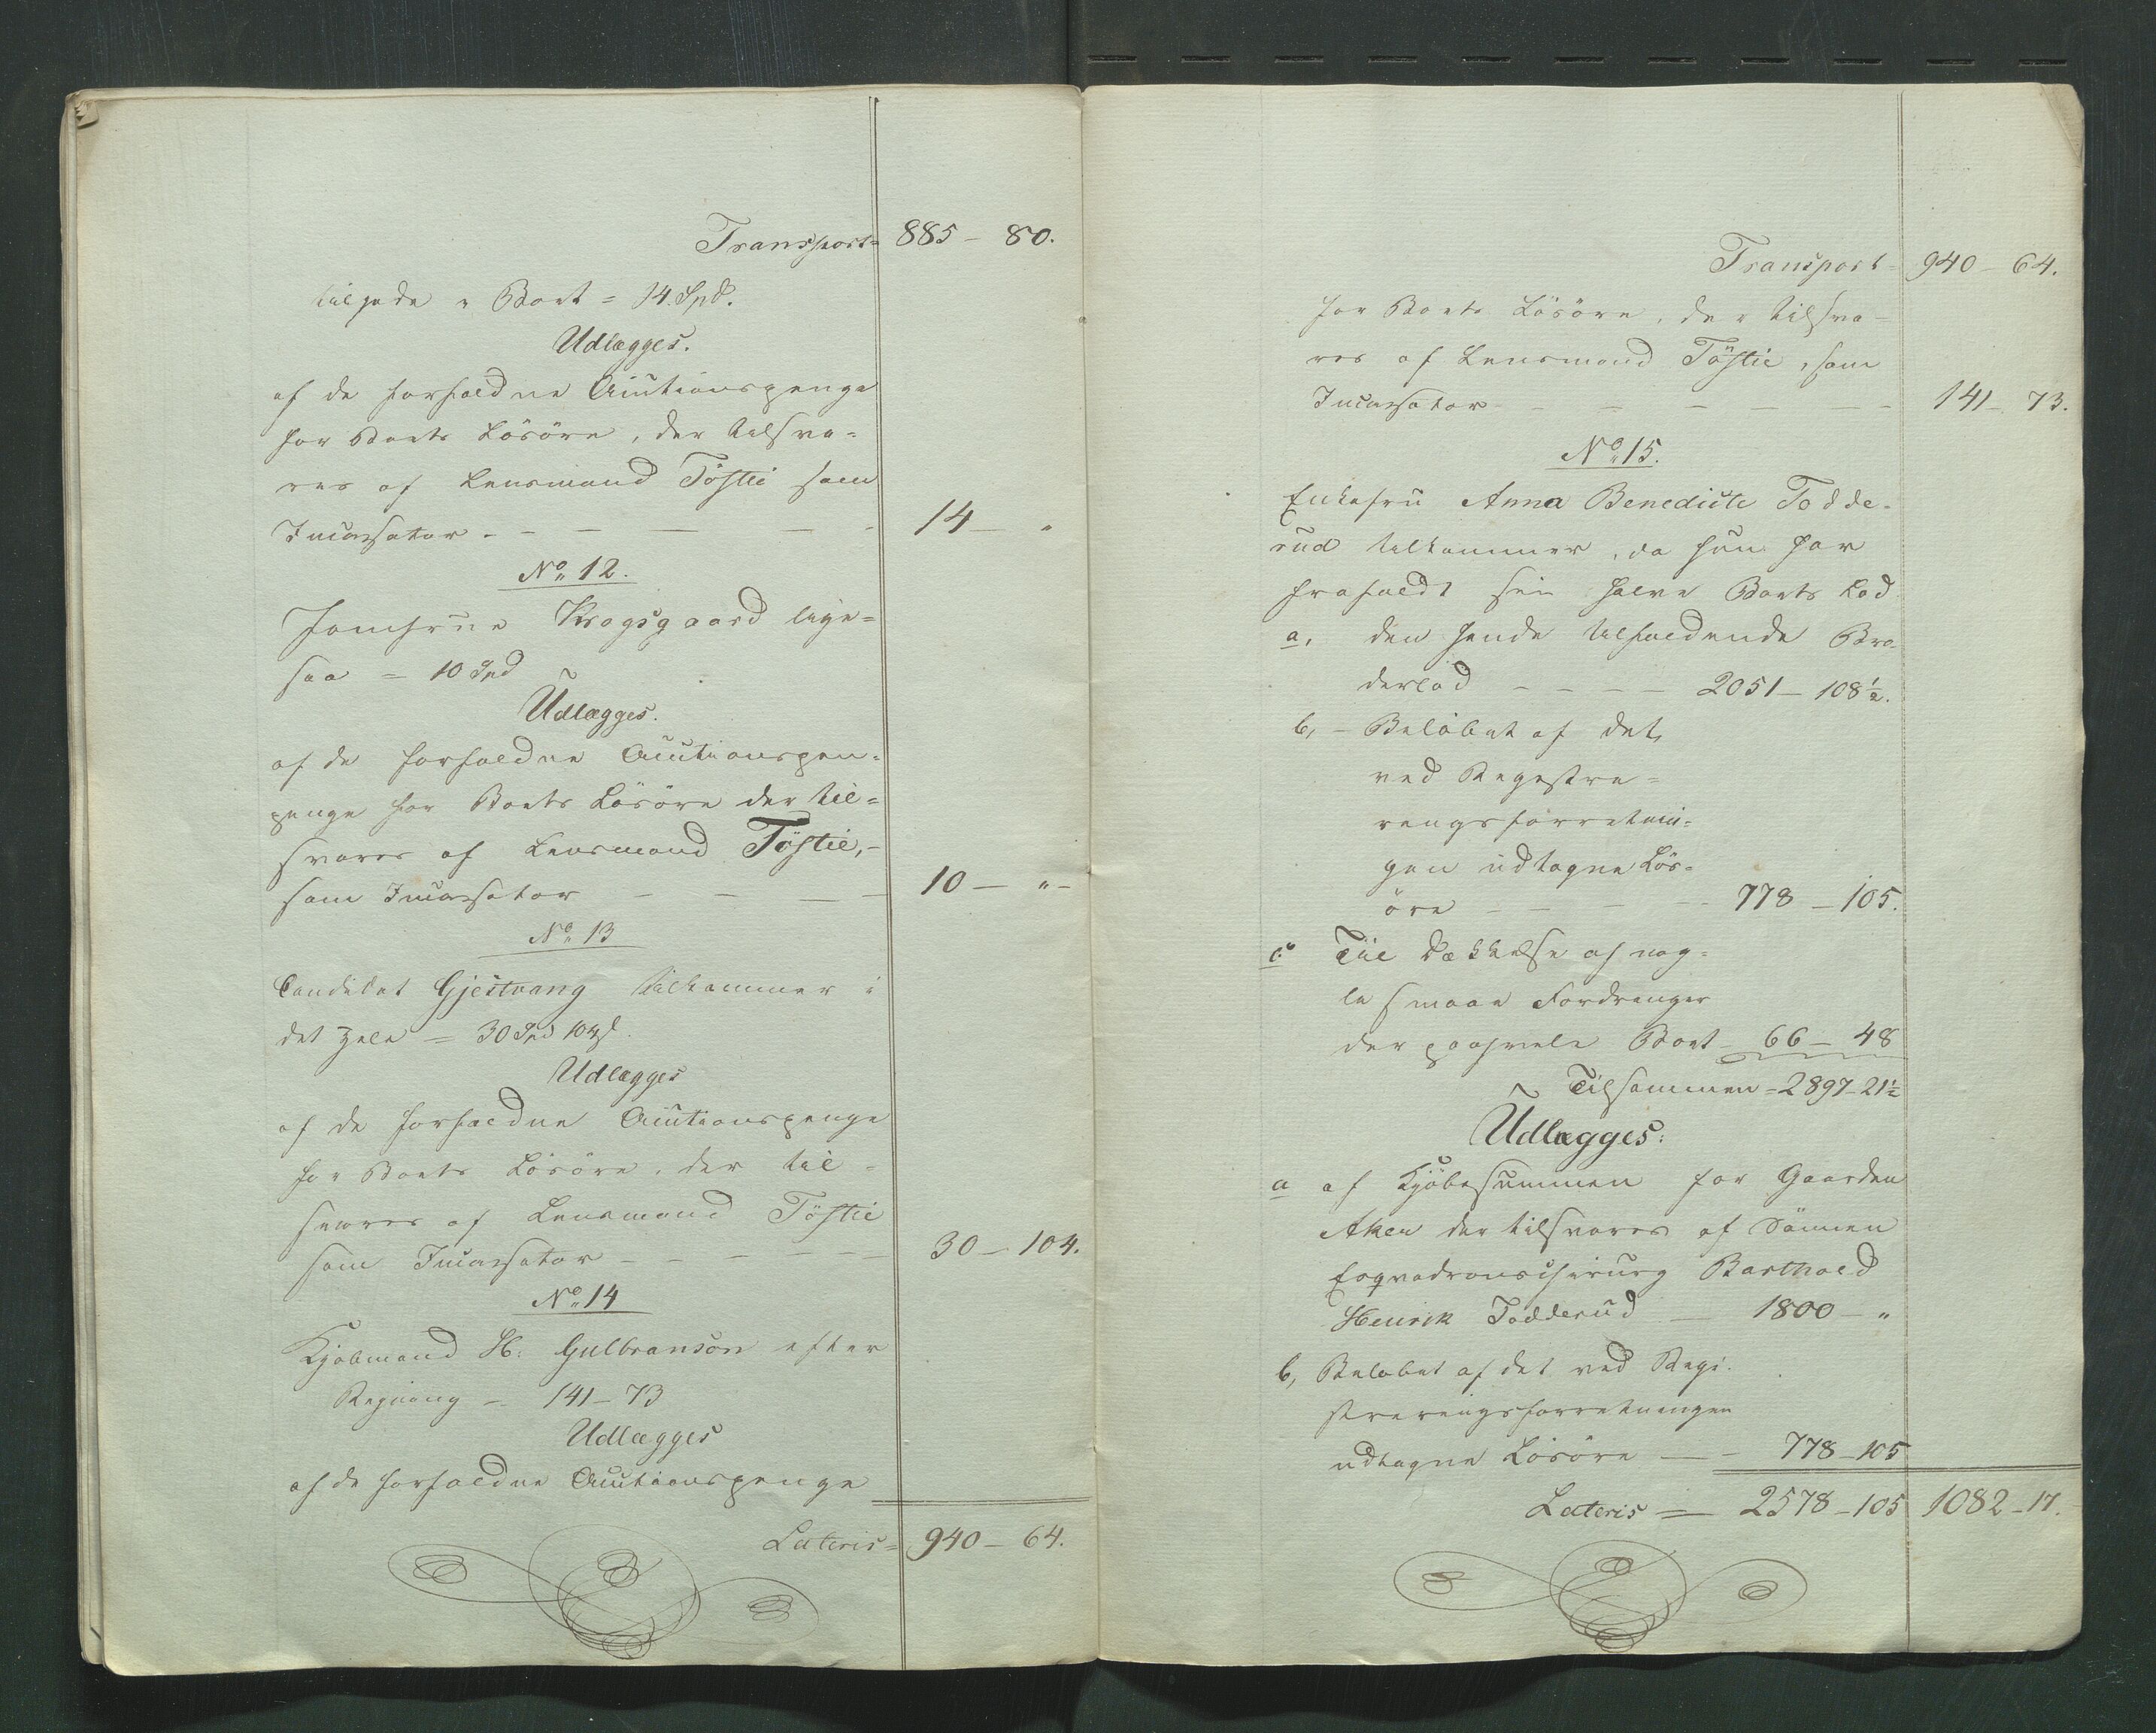 Transport= 885 – 80.
tilgode i Boet = 14 Spd.
Udlægges.
af de forfaldne Auctionspenge
for Boets Lösöre, der tilsva=
res af Lensmand Töstie som
Incassator - - - - - 14 – "
No 12.
Jomfrue Krogsgaard lige=
saa = 10 Spd
Udlægges.
af de forfaldne Auctionspen=
penge for Boets Lösöre der til=
svares af Lensmand Töstie, -
som Incassator - - - - 10 – " –
No 13
Candidat Gjestvang tilkommer i
det Hele = 30 Spd 104 s.
Udlægges
af de forfaldne Auctionspenge
for Boets Lösöre, der til=
svares af Lensmand Töstie
som Incassator - - - - - 30 – 104.
No 14
Kjöbmand H: Gulbranson efter
Regning – 141 – 73
Udlægges
af de forfaldne Auctionspenge
Lateris= 940 – 64.
Transport= 940 – 64.
for Boets Lösöre, der tilsva=
res af Lensmand Töstie, som
Incassator - - - - - 141 – 73.
No 15.
Enkefru Anna Benedicte Todde=
rud tilkommer, da hun har
frafaldt sin halve Boets Lod
a, den hende tilfaldende Bro=
derlod - - - - 2051 – 108½.
b, – Belöbet af det,
ved Regestre=
ringsforretnin=
gen udtagne Lös=
öre - - - - 778 – 105.
c. Til Dækkelse af nog=
le smaae Fordringer
der paahvile Boet – 66 – 48
Tilsammen = 2897 – 21½
Udlægges:
a af Kjöbesummen for Gaarden
Aker der tilsvares af Sönnen
Esqvadronschirurg Barthold
Henrik Todderud – 1800 – "
b, Belöbet af det ved Regi=
streringsforretningen
udtagne Lösöre – – 778 – 105
Lateris = 2578 – 105 1082 – 17.